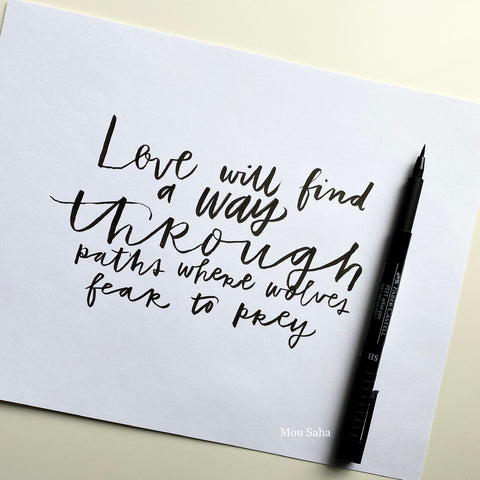 Love will find
a way
through
paths where wolves
fear to prey
FABER-CASTELL
PITT artist pen
SB
Mou Saha